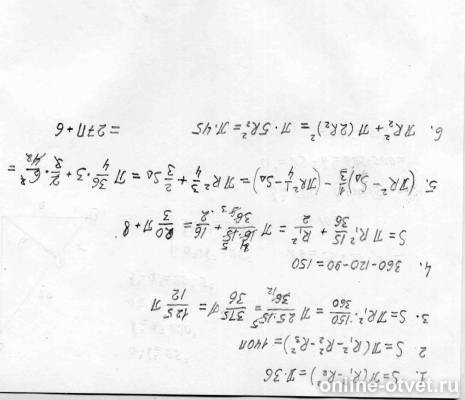 1. S = π(R₁² - R₂²) = π·36
2 S = π(R₁² - R₂² - R₃²) = 140π
3. S = πR₁²·150/360 = π 25·15⁵/36₁₂ = 375/36 π = 125/12 π
4. 360-120-90=150
S = πR₁² 15/36 + R²/2 = π 16·15/36 + 16/2 = 20/3 π + 8.
5. (πR² - S△)1/3 + (πR² 1/4 - S△) = πR² 3/4 + 2/3 S△ = π 36/4 · 3 + 2/3 ·
= 27π + 6
6. πR₂² + π(2R₂)² = π·5R₂² = π·45
online-otvet.ru